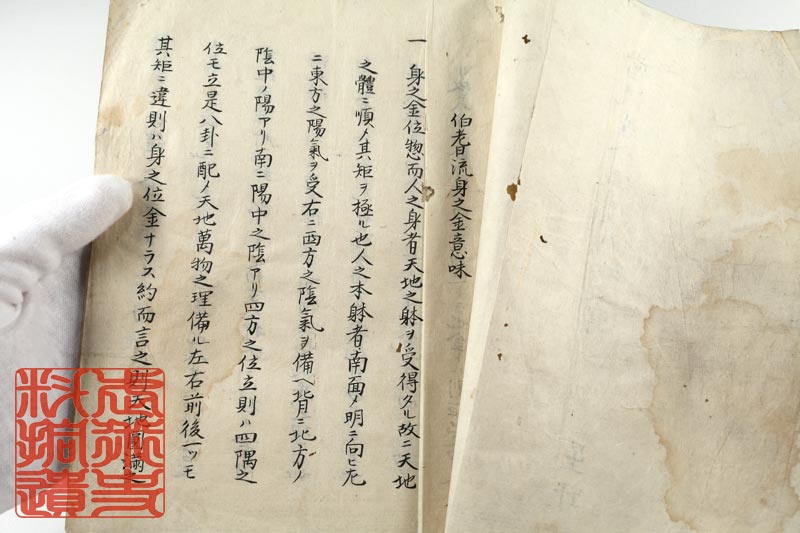 伯耆流身之金意味
一 身之金位惣而人之身者天地之躰ヲ受得タル故ニ天地
之體ニ順メ其矩ヲ極ル也人之本躰者南面メ明ニ向ヒ左
ニ東方之陽氣ヲ受右ニ西方之陰氣ヲ備ヘ背ニ北方ノ
陰中ノ陽アリ南ニ陽中之陰アリ四方之位立則ハ四隅之
位モ立是八卦ニ配メ天地萬物之理備ル左右前後一ツモ
其矩ニ違則ハ身之位金ナラス約而言之則天地圓滿之